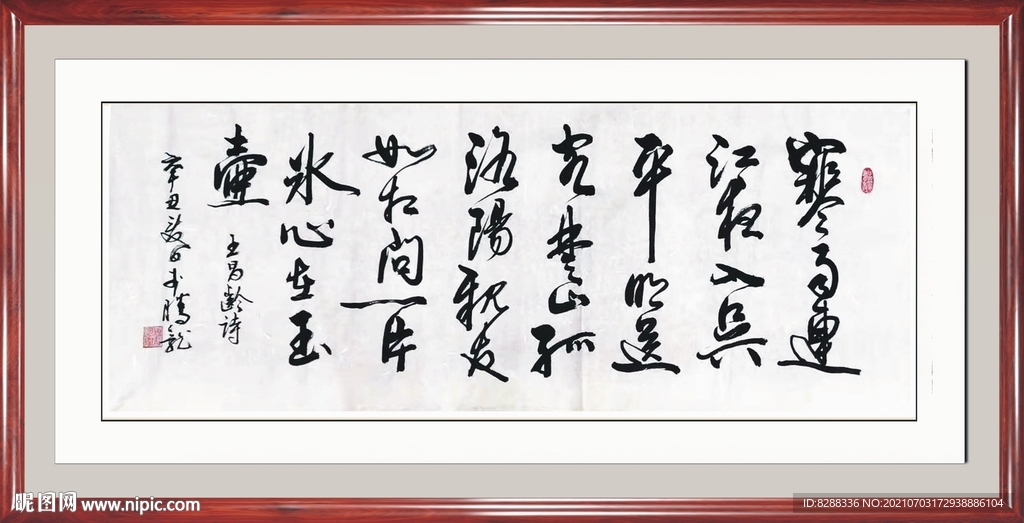 寒雨連
江夜入吳
平明送
客楚山孤
洛陽親友
如相問一片
冰心在玉
壺 王昌齡詩
辛丑夏日 騰龍
昵图网 www.nipic.com
ID:8288336 NO:20210703172938886104